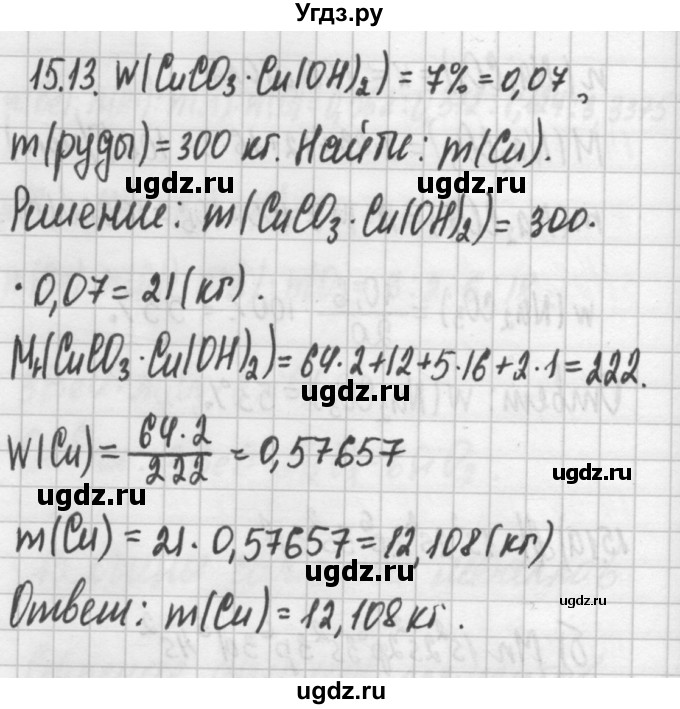 Угдз.ру
15.13. W(CuCO₃·Cu(OH)₂) = 7% = 0,07,
m(руды) = 300 кг. Найти: m(Cu).
ugdz.ru ugdz.ru
Решение: m(CuCO₃·Cu(OH)₂) = 300·
·0,07 = 21(кг).
Mr(CuCO₃·Cu(OH)₂) = 64·2+12+5·16+2·1 = 222.
ugdz.ru ugdz.ru
W(Cu) = 64·2/222 = 0,57657
ugdz.ru
ugdz.ru
m(Cu) = 21·0,57657 = 12,108(кг)
ugdz.ru
ugdz.ru
Ответ: m(Cu) = 12,108 кг.
ugdz.ru
ugdz.ru